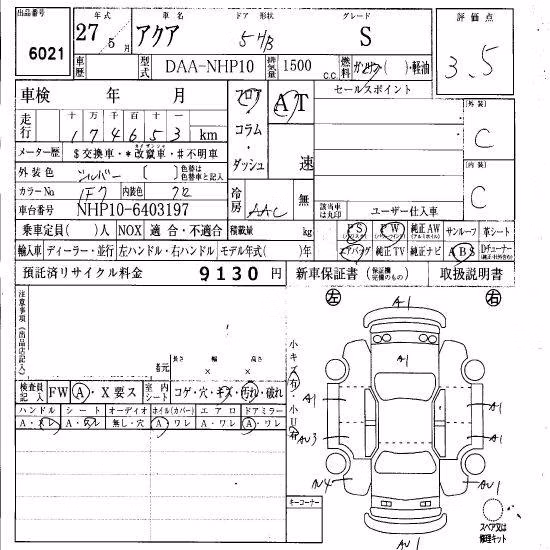 出品番号 6021
年式 27 5月
車名 アクア
ドア 形状 5 H/B
グレード S
評価点 3.5
車歴
型式 DAA-NHP10
排気量 1500 c.c.
燃料 ガソリン( )・軽油
車検 年 月
フロア・コラム・ダッシュ
AT 速
セールスポイント
[外装] C
[内装] C
走行 十 万 千 百 十 一
174653 km
メーター歴 $交換車・*改竄車・#不明車
外装色 シルバー 色替は色替車と記入
カラーNo 1F7 内装色 クロ
冷房 AAC 無
車台番号 NHP10-6403197
該当車は丸印
ユーザー仕入車
乗車定員( )人 NOX 適合・不適合 積載量 kg
PS (パワステ) PW (パワーウインドウ) 純正AW (アルミホイル) サンルーフ 革シート
輸入車 ディーラー・並行 左ハンドル・右ハンドル モデル年式( )年
エアバッグ 純正TV 純正ナビ ABS Dチューナー
預託済リサイクル料金 9130 円
新車保証書 (保証欄完備のもの) 取扱説明書
注意事項(出品店記入)
左 右
長さ × 幅 × 高さ
小キズ有
小U有
検査員記入 FW A・X要ス 室内シート コゲ・穴・キズ・汚れ・破れ
ハンドル シート オーディオ ホイル(カバー) エアロ ドアミラー
A・スレ A・スレ 無し・穴 A・ワレ A・ワレ A・ワレ
A1
A1
A1
A1
AU3
A1
AU1
AU1
キーコーナー
スペア又は修理キット